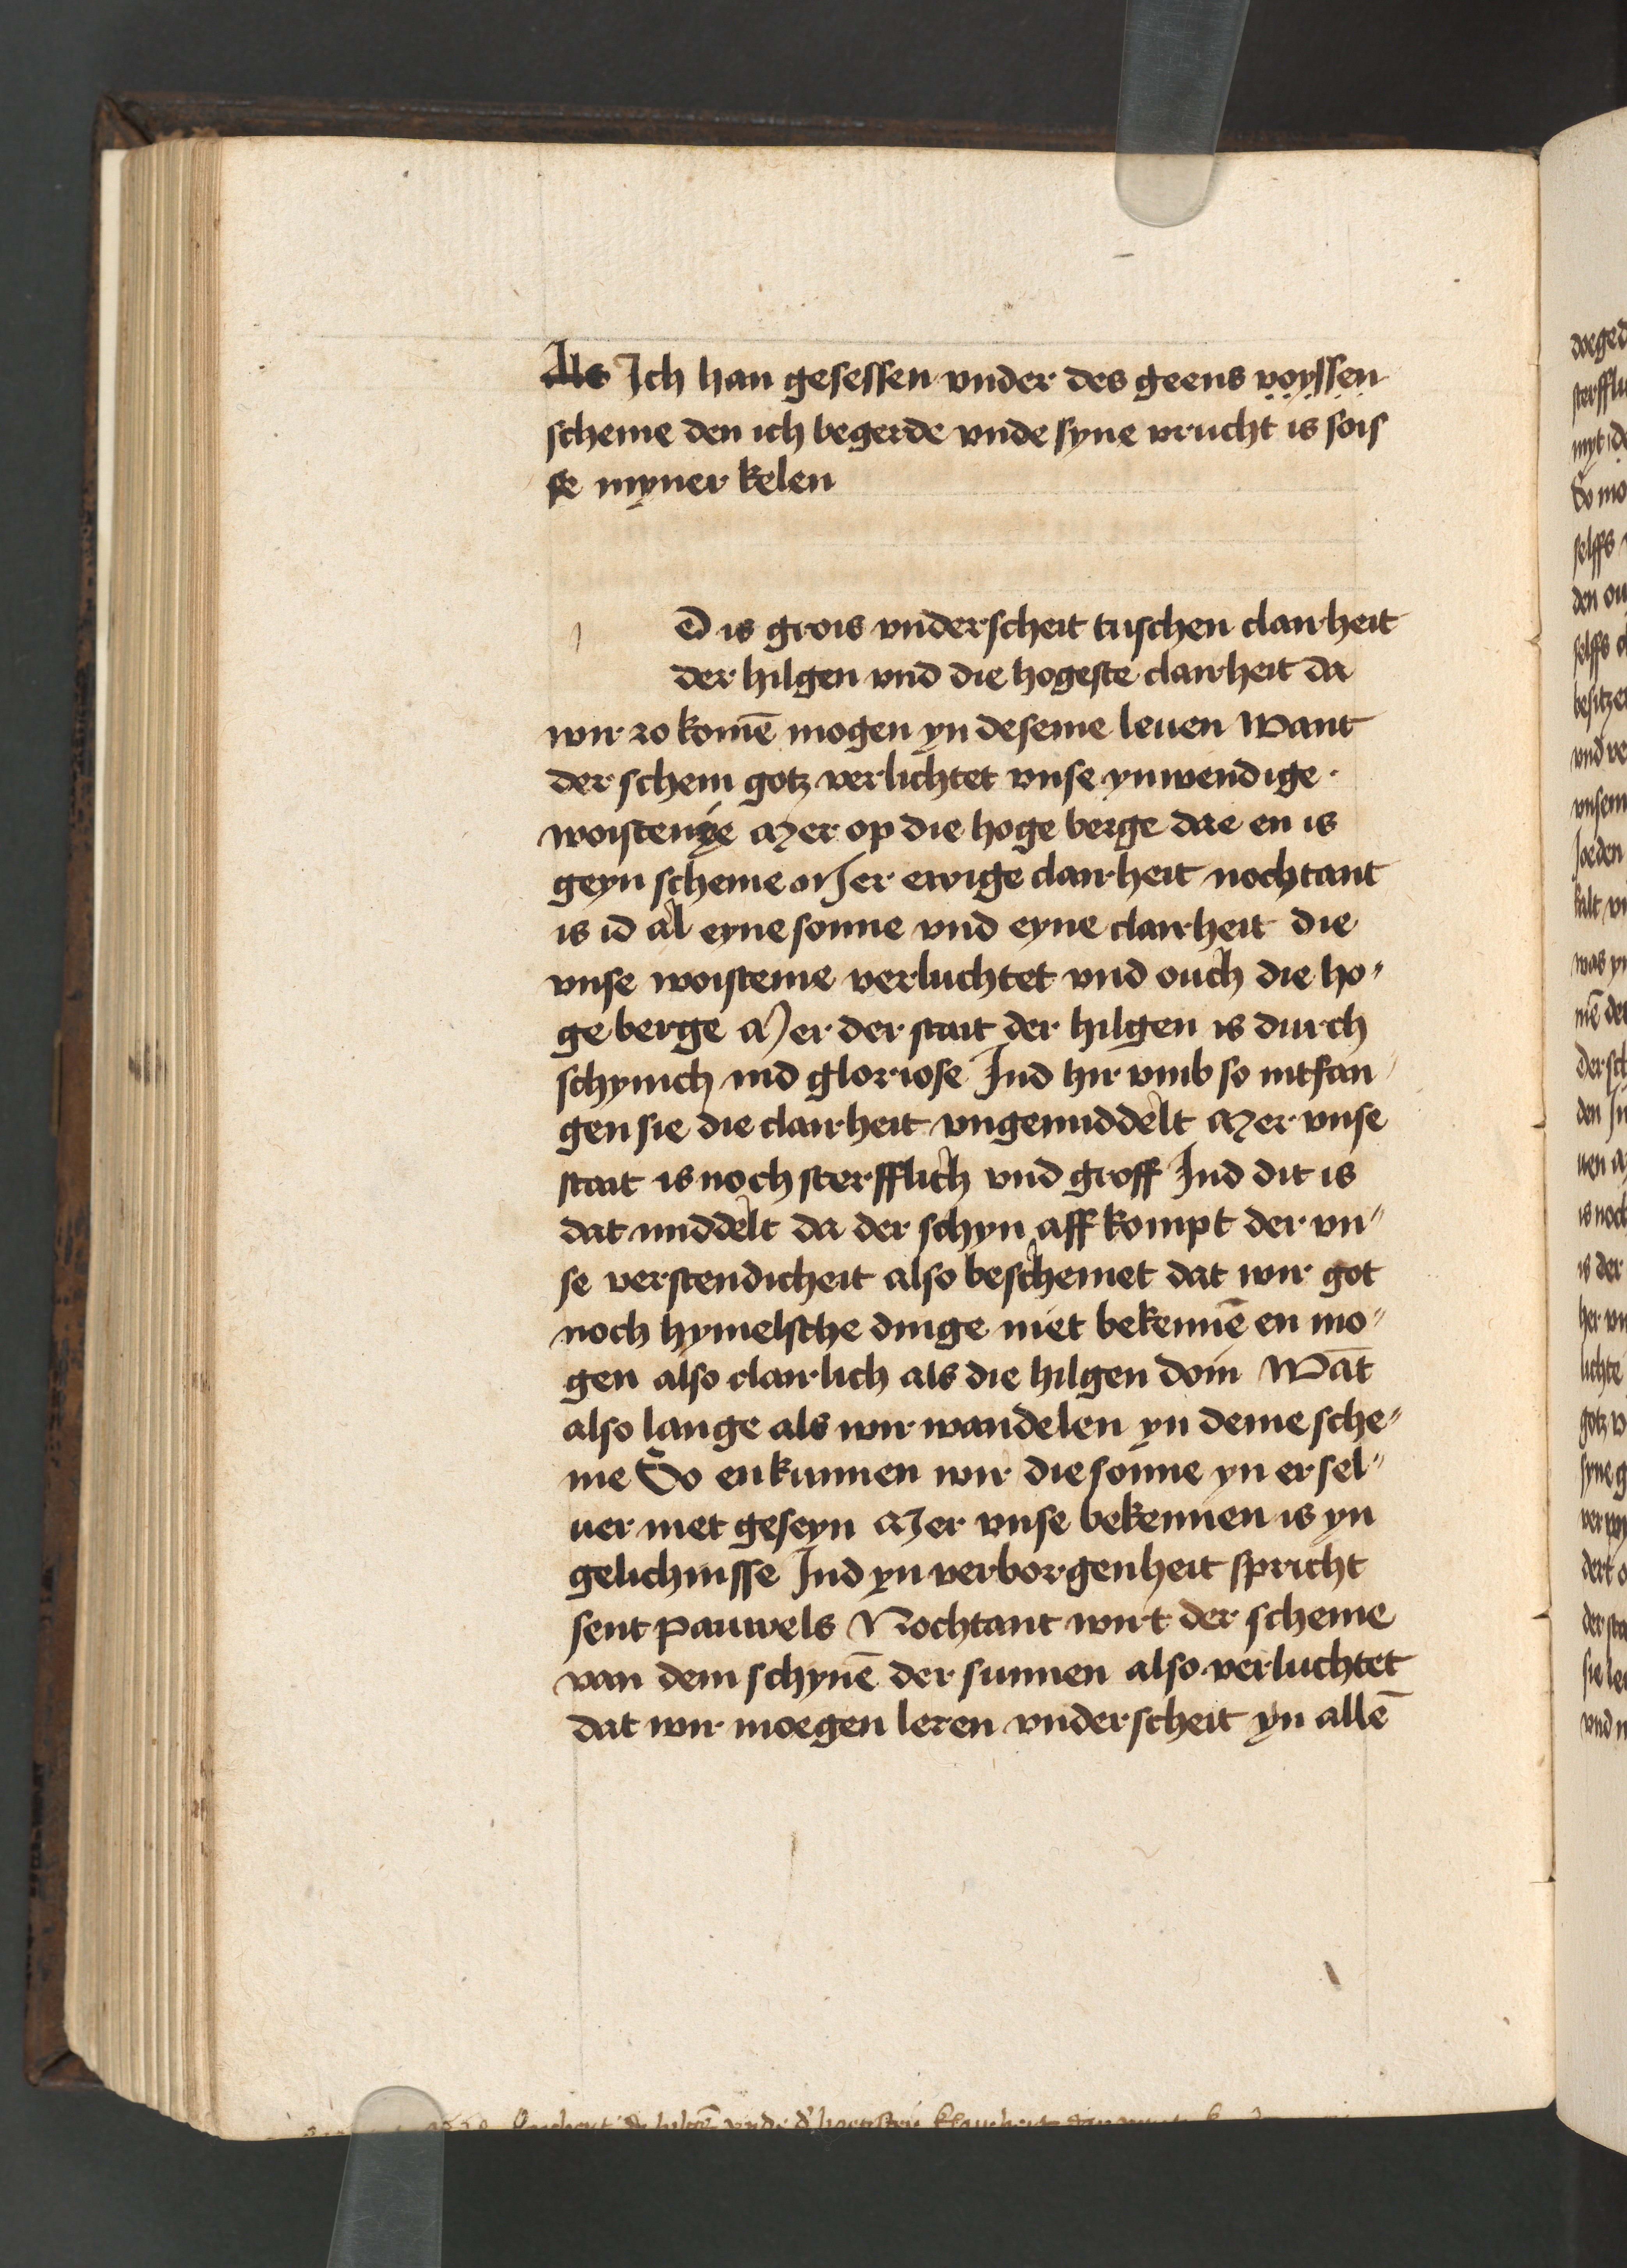 Als Ich han gesessen vnder des geens voyssen
scheme den ich begerde vnde syne vrucht is sois
se myner kelen
Id is grois vnderscheit tuschen clairheit
der hilgen vnd die hogeste clairheit da
wir zo komē mogen yn deseme leuen Want
der schem gotz verlichtet vnse ynwendige
woistenye Mer op die hoge berge dae en is
geyn scheme Mer ewige clairheit nochtant
is id al eyne sonne vnd eyne clairheit die
vnse woistenie verluchtet vnd ouch die ho"
ge berge Mer der stait der hilgen is durch
schynich ind gloriose Ind hir vmb so intfan
gen sie die clairheit vngemiddelt Mer vnse
stait is noch sterfflich vnd groff Ind dit is
dat middelt da der schyn aff kompt der vn"
se verstendicheit also beschemet dat wir got
noch hymelsche dinge niet bekennē en mo"
gen also clairlich als die hilgen doin Wāt
also lange als wir wandelen yn deme sche"
me So enkunnen wir die sonne yn er sel"
uer niet geseyn Mer vnse bekennen is yn
gelichnisse Ind yn verborgenheit spricht
sent pauwels Nochtant wirt der scheme
van dem schynē der sunnen also verluchtet
dat wir moegen leren vnderscheit yn allē